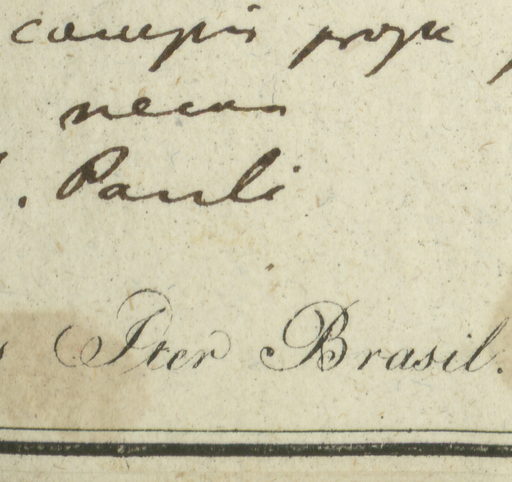 campis prope
necas
. Pauli
s Iter Brasil.